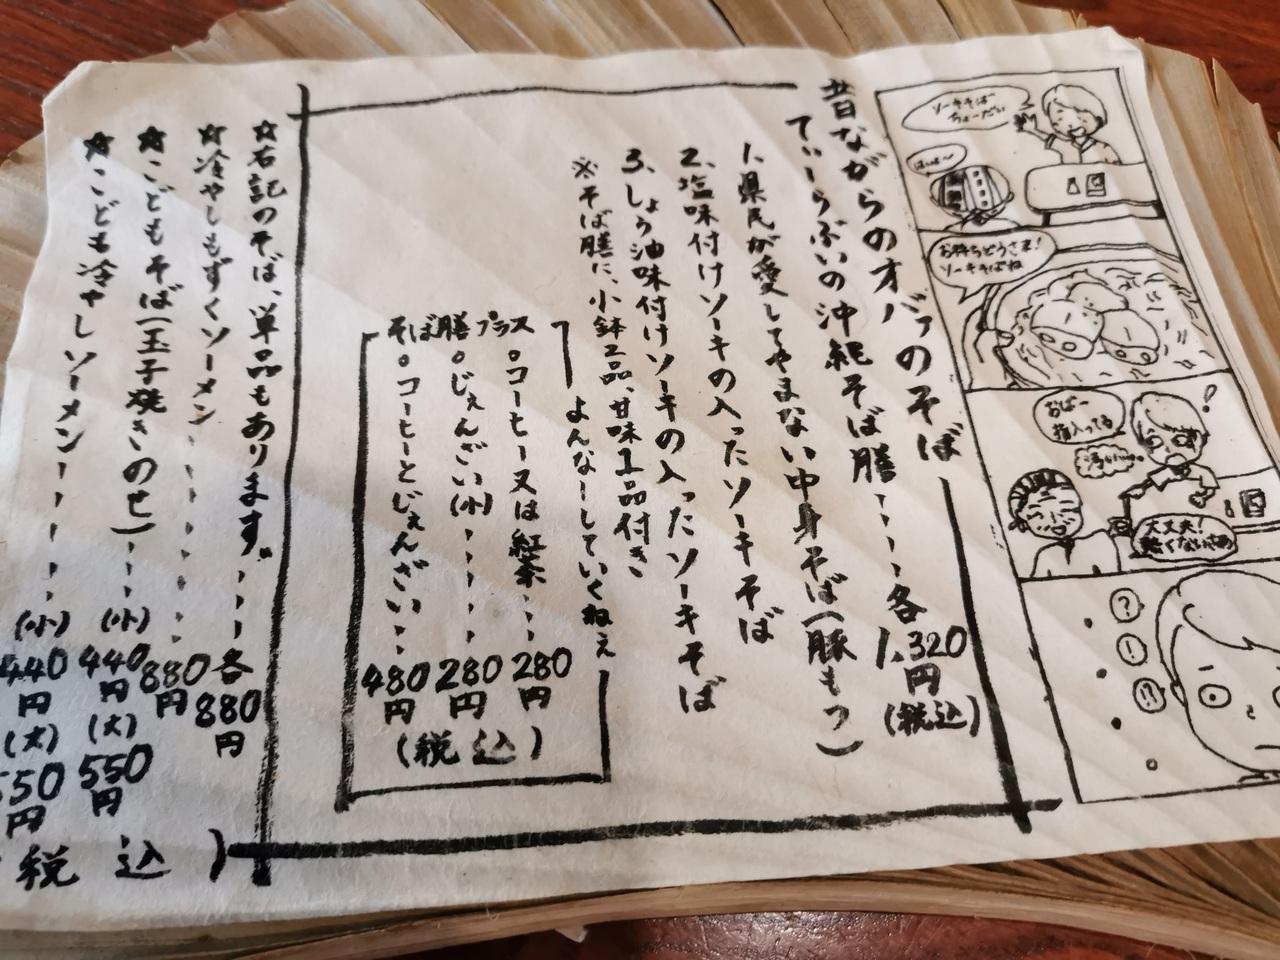 ソーキそば
ちょーだい
はいよ〜
お待ちどうさま!
ソーキそばね
おばー
指入ってる
!
大丈夫!
熱くないさぁ
?
!
!!
昔ながらのオバァのそば
てぃーらぶいの沖縄そば膳・・・・・各1,320円(税込)
1.県民が愛してやまない中身そば(豚もつ)
2.塩味付けソーキの入ったソーキそば
3.しょう油味付けソーキの入ったソーキそば
※そば膳に、小鉢2品、甘味1品付き
よんなーしていくねぇ
そば膳プラス
○コーヒー又は紅茶・・・280円
○じぇんざい(小)・・・・・280円
○コーヒーとじぇんざい・・・480円
(税込)
☆右記のそば、単品もあります。・・・各880円
☆冷やしもずくソーメン・・・・・・・880円
☆こどもそば(玉子焼きのせ)・・・(小)440円(大)550円
☆こども冷やしソーメン・・・・・(小)440円(大)550円
税込)